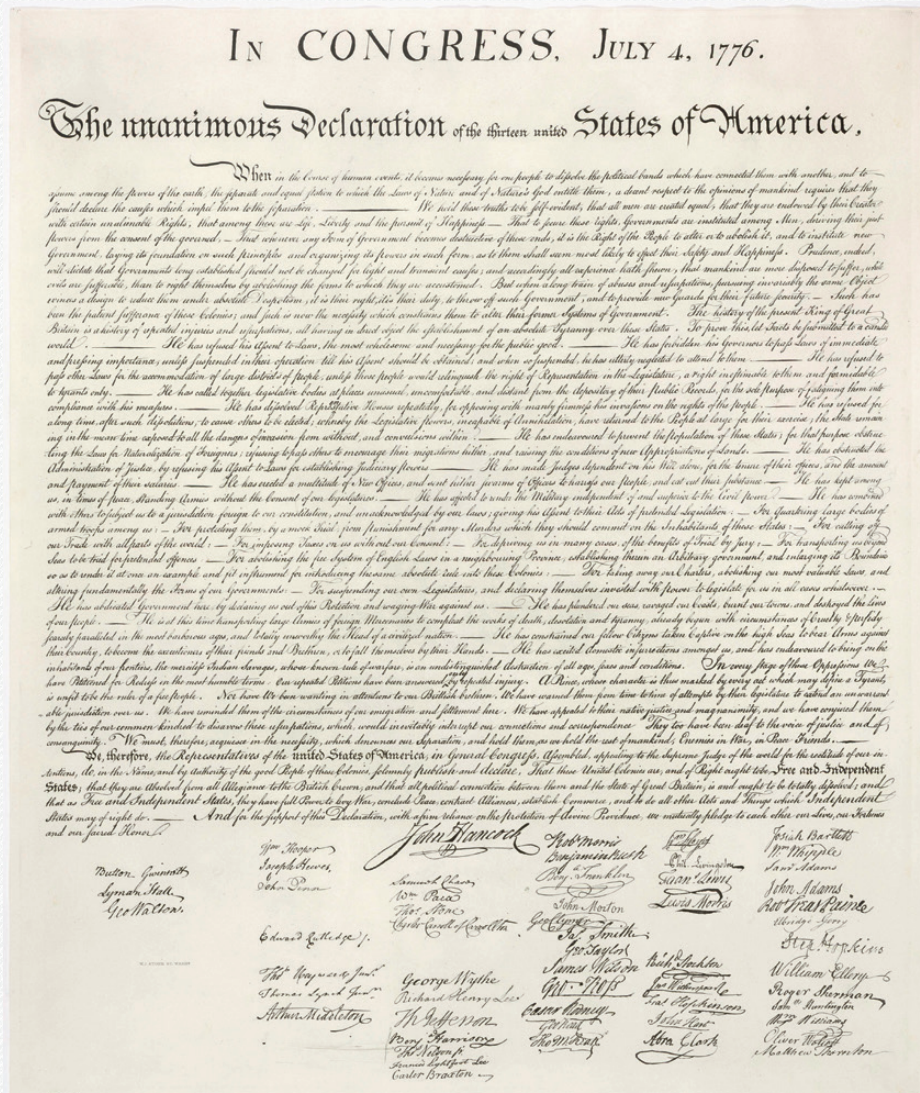 IN CONGRESS, JULY 4, 1776.
The unanimous Declaration of the thirteen united States of America,
When in the Course of human events, it becomes necessary for one people to dissolve the political bands which have connected them with another, and to
assume among the powers of the earth, the separate and equal station to which the Laws of Nature and of Nature's God entitle them, a decent respect to the opinions of mankind requires that they
should declare the causes which impel them to the separation. — We hold these truths to be self-evident, that all men are created equal, that they are endowed by their Creator
with certain unalienable Rights, that among these are Life, Liberty and the pursuit of Happiness. — That to secure these rights, Governments are instituted among Men, deriving their just
powers from the consent of the governed, — That whenever any Form of Government becomes destructive of these ends, it is the Right of the People to alter or to abolish it, and to institute new
Government, laying its foundation on such principles and organizing its powers in such form, as to them shall seem most likely to effect their Safety and Happiness. Prudence, indeed,
will dictate that Governments long established should not be changed for light and transient causes; and accordingly all experience hath shewn, that mankind are more disposed to suffer, while
evils are sufferable, than to right themselves by abolishing the forms to which they are accustomed. But when a long train of abuses and usurpations, pursuing invariably the same Object
evinces a design to reduce them under absolute Despotism, it is their right, it is their duty, to throw off such Government, and to provide new Guards for their future security. — Such has
been the patient sufferance of these Colonies; and such is now the necessity which constrains them to alter their former Systems of Government. The history of the present King of Great
Britain is a history of repeated injuries and usurpations, all having in direct object the establishment of an absolute Tyranny over these States. To prove this, let Facts be submitted to a candid
world. — He has refused his Assent to Laws, the most wholesome and necessary for the public good. — He has forbidden his Governors to pass Laws of immediate
and pressing importance, unless suspended in their operation till his Assent should be obtained; and when so suspended, he has utterly neglected to attend to them. — He has refused to
pass other Laws for the accommodation of large districts of people, unless those people would relinquish the right of Representation in the Legislature, a right inestimable to them and formidable
to tyrants only. — He has called together legislative bodies at places unusual, uncomfortable, and distant from the depository of their Public Records, for the sole purpose of fatiguing them into
compliance with his measures. — He has dissolved Representative Houses repeatedly, for opposing with manly firmness his invasions on the rights of the people. — He has refused for
a long time, after such dissolutions, to cause others to be elected; whereby the Legislative powers, incapable of Annihilation, have returned to the People at large for their exercise; the State remain-
ing in the mean time exposed to all the dangers of invasion from without, and convulsions within. — He has endeavoured to prevent the population of these States; for that purpose obstruc-
ting the Laws for Naturalization of Foreigners; refusing to pass others to encourage their migrations hither, and raising the conditions of new Appropriations of Lands. — He has obstructed the
Administration of Justice, by refusing his Assent to Laws for establishing Judiciary powers. — He has made Judges dependent on his Will alone, for the tenure of their offices, and the amount
and payment of their salaries. — He has erected a multitude of New Offices, and sent hither swarms of Officers to harrass our People, and eat out their substance. — He has kept among
us, in times of peace, Standing Armies without the Consent of our legislatures. — He has affected to render the Military independent of and superior to the Civil power. — He has combined
with others to subject us to a jurisdiction foreign to our constitution, and unacknowledged by our laws; giving his Assent to their Acts of pretended Legislation: — For Quartering large bodies of
armed troops among us: — For protecting them, by a mock Trial, from punishment for any Murders which they should commit on the Inhabitants of these States: — For cutting off
our Trade with all parts of the world: — For imposing Taxes on us without our Consent: — For depriving us in many cases, of the benefits of Trial by Jury: — For transporting us beyond
Seas to be tried for pretended offences — For abolishing the free System of English Laws in a neighbouring Province, establishing therein an Arbitrary government, and enlarging its Boundaries
so as to render it at once an example and fit instrument for introducing the same absolute rule into these Colonies: — For taking away our Charters, abolishing our most valuable Laws, and
altering fundamentally the Forms of our Governments: — For suspending our own Legislatures, and declaring themselves invested with power to legislate for us in all cases whatsoever. —
He has abdicated Government here, by declaring us out of his Protection and waging War against us. — He has plundered our seas, ravaged our Coasts, burnt our towns, and destroyed the lives
of our people. — He is at this time transporting large Armies of foreign Mercenaries to compleat the works of death, desolation and tyranny, already begun with circumstances of Cruelty & perfidy
scarcely paralleled in the most barbarous ages, and totally unworthy the Head of a civilized nation. — He has constrained our fellow Citizens taken Captive on the high Seas to bear Arms against
their Country, to become the executioners of their friends and Brethren, or to fall themselves by their Hands. — He has excited domestic insurrections amongst us, and has endeavoured to bring on the
inhabitants of our frontiers, the merciless Indian Savages, whose known rule of warfare, is an undistinguished destruction of all ages, sexes and conditions. In every stage of these Oppressions We
have Petitioned for Redress in the most humble terms: Our repeated Petitions have been answered only by repeated injury. A Prince, whose character is thus marked by every act which may define a Tyrant,
is unfit to be the ruler of a free people. Nor have We been wanting in attentions to our Brittish brethren. We have warned them from time to time of attempts by their legislature to extend an unwarrant-
able jurisdiction over us. We have reminded them of the circumstances of our emigration and settlement here. We have appealed to their native justice and magnanimity, and we have conjured them
by the ties of our common kindred to disavow these usurpations, which, would inevitably interrupt our connections and correspondence. They too have been deaf to the voice of justice and of
consanguinity. We must, therefore, acquiesce in the necessity, which denounces our Separation, and hold them, as we hold the rest of mankind, Enemies in War, in Peace Friends. —
We, therefore, the Representatives of the united States of America, in General Congress, Assembled, appealing to the Supreme Judge of the world for the rectitude of our in-
tentions, do, in the Name, and by Authority of the good People of these Colonies, solemnly publish and declare, That these United Colonies are, and of Right ought to be Free and Independent
States; that they are Absolved from all Allegiance to the British Crown, and that all political connection between them and the State of Great Britain, is and ought to be totally dissolved; and
that as Free and Independent States, they have full Power to levy War, conclude Peace, contract Alliances, establish Commerce, and to do all other Acts and Things which Independent
States may of right do. — And for the support of this Declaration, with a firm reliance on the protection of divine Providence, we mutually pledge to each other our Lives, our Fortunes
and our sacred Honor.
Button Gwinnett
Lyman Hall
Geo Walton.
Wm Hooper
Joseph Hewes,
John Penn
Edward Rutledge /.
Thos Heyward Junr.
Thomas Lynch Junr.
Arthur Middleton
John Hancock
Samuel Chase
Wm Paca
Thos Stone
Charles Carroll of Carrollton
George Wythe
Richard Henry Lee
Th Jefferson
Benj Harrison
Thos Nelson jr.
Francis Lightfoot Lee
Carter Braxton
Robt Morris
Benjamin Rush
Benj. Franklin
John Morton
Geo Clymer
Jas. Smith
Geo. Taylor
James Wilson
Geo. Ross
Caesar Rodney
Geo Read
Tho M:Kean
Wm Floyd
Phil. Livingston
Frans. Lewis
Lewis Morris
Richd. Stockton
Jno Witherspoon
Fras. Hopkinson
John Hart
Abra Clark
Josiah Bartlett
Wm Whipple
Saml Adams
John Adams
Robt Treat Paine
Elbridge Gerry
Step. Hopkins
William Ellery
Roger Sherman
Saml Huntington
Wm Williams
Oliver Wolcott
Matthew Thornton